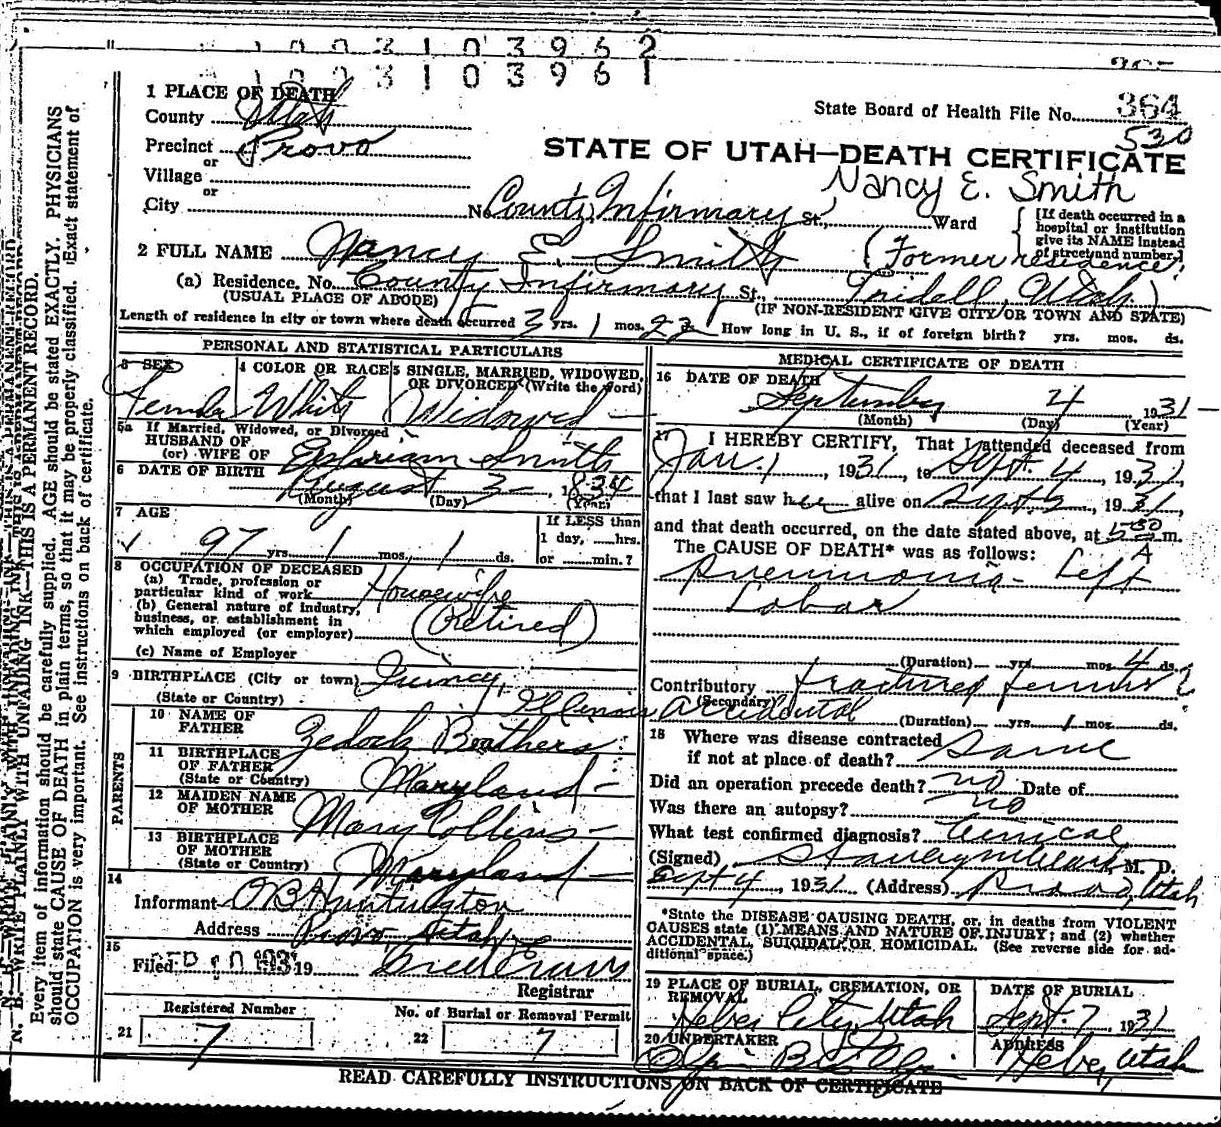 1 0 0 3 1 0 3 9 6 2
1 0 0 3 1 0 3 9 6 1
1 PLACE OF DEATH
County Utah
State Board of Health File No. 364
530
Precinct Provo
or
STATE OF UTAH—DEATH CERTIFICATE
Village
or
Nancy E. Smith
City
No. County Infirmary St., Ward
[If death occurred in a hospital or institution give its NAME instead of street and number.]
2 FULL NAME Nancy E. Smith
(Former residence,
(a) Residence. No. County Infirmary St., Tridell, Utah)
(USUAL PLACE OF ABODE)
(IF NON-RESIDENT GIVE CITY OR TOWN AND STATE)
Length of residence in city or town where death occurred 3 yrs. 1 mos. 22 How long in U. S., if of foreign birth? yrs. mos. ds.
PERSONAL AND STATISTICAL PARTICULARS
3 SEX
Female
4 COLOR OR RACE
White
5 SINGLE, MARRIED, WIDOWED, OR DIVORCED (Write the word)
Widowed
5a If Married, Widowed, or Divorced
HUSBAND OF
(or) WIFE OF Ephriam Smith
6 DATE OF BIRTH
August 3 1834
(Month) (Day) (Year)
7 AGE
97 yrs. 1 mos. 1 ds.
If LESS than
1 day, hrs.
or min.?
8 OCCUPATION OF DECEASED
(a) Trade, profession or
particular kind of work Housewife
(b) General nature of industry,
business, or establishment in
which employed (or employer) (Retired)
(c) Name of Employer
9 BIRTHPLACE (City or town) Quincy,
(State or Country) Illinois
PARENTS
10 NAME OF
FATHER Zedock Boathers
11 BIRTHPLACE
OF FATHER
(State or Country) Maryland
12 MAIDEN NAME
OF MOTHER Mary Collins
13 BIRTHPLACE
OF MOTHER
(State or Country) Maryland
14
Informant O B Huntington
Address Provo Utah
15
Filed 1931 19
Registrar
Registered Number
21 7
No. of Burial or Removal Permit
22 7
MEDICAL CERTIFICATE OF DEATH
16 DATE OF DEATH
September 4 1931
(Month) (Day) (Year)
17 I HEREBY CERTIFY, That I attended deceased from
Jan. 1, 1931, to Sept. 4, 1931,
that I last saw her alive on Sept 3, 1931,
and that death occurred, on the date stated above, at 5:30 A m.
The CAUSE OF DEATH* was as follows:
Pneumonia - Left
Lobar
(Duration) yrs. mos. 4 ds.
Contributory fractured femur
(Secondary) Accidental
(Duration) yrs. 1 mos. ds.
18 Where was disease contracted
if not at place of death? Same
Did an operation precede death? no Date of
Was there an autopsy? no
What test confirmed diagnosis? Clinical
(Signed) M. D.
Sept 4, 1931 (Address) Provo, Utah
*State the DISEASE CAUSING DEATH, or, in deaths from VIOLENT
CAUSES state (1) MEANS AND NATURE OF INJURY; and (2) whether
ACCIDENTAL, SUICIDAL OR HOMICIDAL. (See reverse side for ad-
ditional space.)
19 PLACE OF BURIAL, CREMATION, OR
REMOVAL
Heber City, Utah
DATE OF BURIAL
Sept. 7, 1931
20 UNDERTAKER
ADDRESS
Heber, Utah
READ CAREFULLY INSTRUCTIONS ON BACK OF CERTIFICATE
N. B.—WRITE PLAINLY WITH UNFADING INK—THIS IS A PERMANENT RECORD.
Every item of information should be carefully supplied. AGE should be stated EXACTLY. PHYSICIANS
should state CAUSE OF DEATH in plain terms, so that it may be properly classified. Exact statement of
OCCUPATION is very important. See instructions on back of certificate.